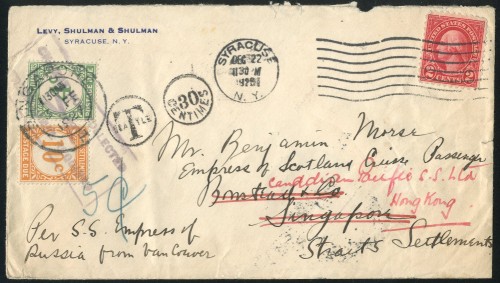 LEVY, SHULMAN & SHULMAN
SYRACUSE, N.Y.
SYRACUSE
DEC 22
1130 M
N.Y.
UNITED STATES POSTAGE
2
T
30
CENTIMES
10c
POSTAGE DUE
Mr. Benjamin Morse
Empress of Scotland Cruise Passenger
Canadian Pacific S.S. Ltd
Hong Kong
Singapore
Straits Settlements
Per S.S. Empress of
Russia from Vancouver